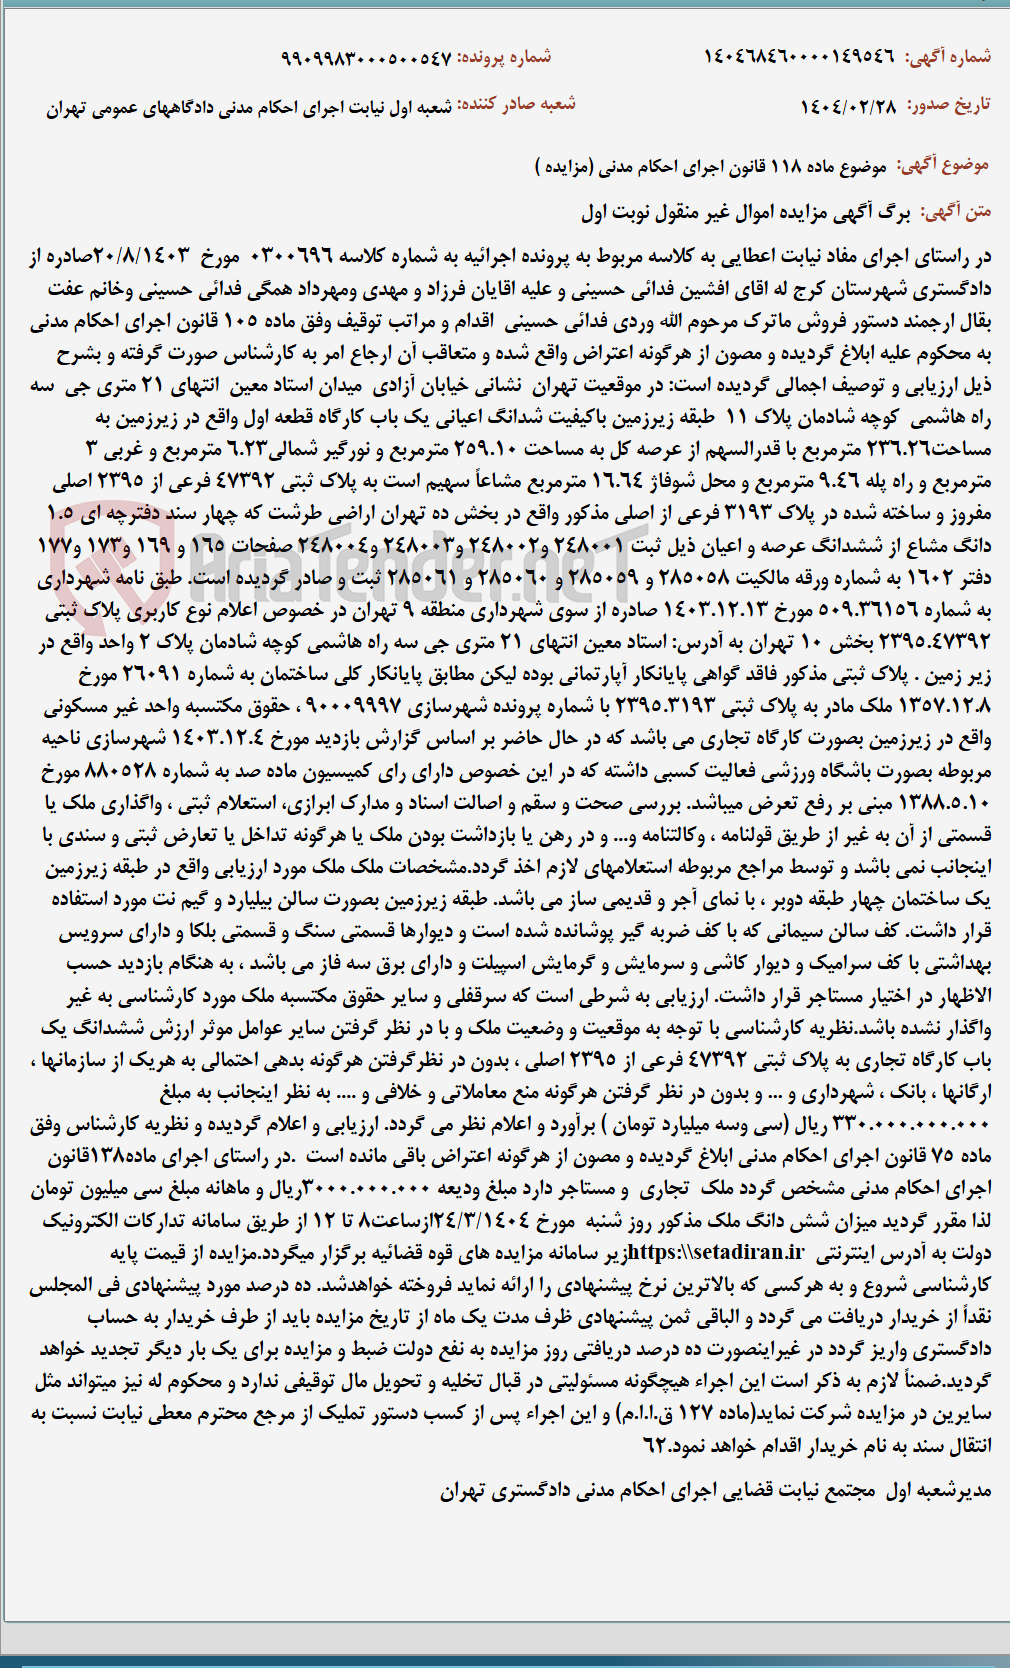 شماره آگهی: ۱۴۰۴۶۸۴۶۰۰۰۰۱۴۹۵۴۶ شماره پرونده: ۹۹۰۹۹۸۳۰۰۰۵۰۰۵۴۷
تاریخ صدور: ۱۴۰۴/۰۲/۲۸ شعبه صادر کننده: شعبه اول نیابت اجرای احکام مدنی دادگاههای عمومی تهران
موضوع آگهی: موضوع ماده ۱۱۸ قانون اجرای احکام مدنی (مزایده )
متن آگهی: برگ آگهی مزایده اموال غیر منقول نوبت اول
در راستای اجرای مفاد نیابت اعطایی به کلاسه مربوط به پرونده اجرائیه به شماره کلاسه ۰۳۰۰۶۹۶ مورخ ۲۰/۸/۱۴۰۳صادره از
دادگستری شهرستان کرج له اقای افشین فدائی حسینی و علیه اقایان فرزاد و مهدی ومهرداد همگی فدائی حسینی وخانم عفت
بقال ارجمند دستور فروش ماترک مرحوم الله وردی فدائی حسینی اقدام و مراتب توقیف وفق ماده ۱۰۵ قانون اجرای احکام مدنی
به محکوم علیه ابلاغ گردیده و مصون از هرگونه اعتراض واقع شده و متعاقب آن ارجاع امر به کارشناس صورت گرفته و بشرح
ذیل ارزیابی و توصیف اجمالی گردیده است: در موقعیت تهران نشانی خیابان آزادی میدان استاد معین انتهای ۲۱ متری جی سه
راه هاشمی کوچه شادمان پلاک ۱۱ طبقه زیرزمین باکیفیت شدانگ اعیانی یک باب کارگاه قطعه اول واقع در زیرزمین به
مساحت۲۳۶.۲۶ مترمربع با قدرالسهم از عرصه کل به مساحت ۲۵۹.۱۰ مترمربع و نورگیر شمالی۶.۲۳ مترمربع و غربی ۳
مترمربع و راه پله ۹.۴۶ مترمربع و محل شوفاژ ۱۶.۶۴ مترمربع مشاعاً سهیم است به پلاک ثبتی ۴۷۳۹۲ فرعی از ۲۳۹۵ اصلی
مفروز و ساخته شده در پلاک ۳۱۹۳ فرعی از اصلی مذکور واقع در بخش ده تهران اراضی طرشت که چهار سند دفترچه ای ۱.۵
دانگ مشاع از ششدانگ عرصه و اعیان ذیل ثبت ۲۴۸۰۰۱ و۲۴۸۰۰۲ و۲۴۸۰۰۳ و۲۴۸۰۰۴ صفحات ۱۶۵ و ۱۶۹ و۱۷۳ و۱۷۷
دفتر ۱۶۰۲ به شماره ورقه مالکیت ۲۸۵۰۵۸ و ۲۸۵۰۵۹ و ۲۸۵۰۶۰ و ۲۸۵۰۶۱ ثبت و صادر گردیده است. طبق نامه شهرداری
به شماره ۵۰۹.۳۶۱۵۶ مورخ ۱۴۰۳.۱۲.۱۳ صادره از سوی شهرداری منطقه ۹ تهران در خصوص اعلام نوع کاربری پلاک ثبتی
۲۳۹۵.۴۷۳۹۲ بخش ۱۰ تهران به آدرس: استاد معین انتهای ۲۱ متری جی سه راه هاشمی کوچه شادمان پلاک ۲ واحد واقع در
زیر زمین . پلاک ثبتی مذکور فاقد گواهی پایانکار آپارتمانی بوده لیکن مطابق پایانکار کلی ساختمان به شماره ۲۶۰۹۱ مورخ
۱۳۵۷.۱۲.۸ ملک مادر به پلاک ثبتی ۲۳۹۵.۳۱۹۳ با شماره پرونده شهرسازی ۹۰۰۰۹۹۹۷ ، حقوق مکتسبه واحد غیر مسکونی
واقع در زیرزمین بصورت کارگاه تجاری می باشد که در حال حاضر بر اساس گزارش بازدید مورخ ۱۴۰۳.۱۲.۴ شهرسازی ناحیه
مربوطه بصورت باشگاه ورزشی فعالیت کسبی داشته که در این خصوص دارای رای کمیسیون ماده صد به شماره ۸۸۰۵۲۸ مورخ
۱۳۸۸.۵.۱۰ مبنی بر رفع تعرض میباشد. بررسی صحت و سقم و اصالت اسناد و مدارک ابرازی، استعلام ثبتی ، واگذاری ملک یا
قسمتی از آن به غیر از طریق قولنامه ، وکالتنامه و... و در رهن یا بازداشت بودن ملک یا هرگونه تداخل یا تعارض ثبتی و سندی با
اینجانب نمی باشد و توسط مراجع مربوطه استعلامهای لازم اخذ گردد.مشخصات ملک ملک مورد ارزیابی واقع در طبقه زیرزمین
یک ساختمان چهار طبقه دوبر ، با نمای آجر و قدیمی ساز می باشد. طبقه زیرزمین بصورت سالن بیلیارد و گیم نت مورد استفاده
قرار داشت. کف سالن سیمانی که با کف ضربه گیر پوشانده شده است و دیوارها قسمتی سنگ و قسمتی بلکا و دارای سرویس
بهداشتی با کف سرامیک و دیوار کاشی و سرمایش و گرمایش اسپیلت و دارای برق سه فاز می باشد ، به هنگام بازدید حسب
الاظهار در اختیار مستاجر قرار داشت. ارزیابی به شرطی است که سرقفلی و سایر حقوق مکتسبه ملک مورد کارشناسی به غیر
واگذار نشده باشد.نظریه کارشناسی با توجه به موقعیت و وضعیت ملک و با در نظر گرفتن سایر عوامل موثر ارزش ششدانگ یک
باب کارگاه تجاری به پلاک ثبتی ۴۷۳۹۲ فرعی از ۲۳۹۵ اصلی ، بدون در نظرگرفتن هرگونه بدهی احتمالی به هریک از سازمانها ،
ارگانها ، بانک ، شهرداری و ... و بدون در نظر گرفتن هرگونه منع معاملاتی و خلافی و .... به نظر اینجانب به مبلغ
۳۳۰.۰۰۰.۰۰۰.۰۰۰ ریال (سی وسه میلیارد تومان ) برآورد و اعلام نظر می گردد. ارزیابی و اعلام گردیده و نظریه کارشناس وفق
ماده ۷۵ قانون اجرای احکام مدنی ابلاغ گردیده و مصون از هرگونه اعتراض باقی مانده است .در راستای اجرای ماده۱۳۸قانون
اجرای احکام مدنی مشخص گردد ملک تجاری و مستاجر دارد مبلغ ودیعه ۳۰۰۰.۰۰۰.۰۰۰ریال و ماهانه مبلغ سی میلیون تومان
لذا مقرر گردید میزان شش دانگ ملک مذکور روز شنبه مورخ ۲۴/۳/۱۴۰۴ازساعت۸ تا ۱۲ از طریق سامانه تدارکات الکترونیک
دولت به آدرس اینترنتی https:\\setadiran.irزیر سامانه مزایده های قوه قضائیه برگزار میگردد.مزایده از قیمت پایه
کارشناسی شروع و به هرکسی که بالاترین نرخ پیشنهادی را ارائه نماید فروخته خواهدشد. ده درصد مورد پیشنهادی فی المجلس
نقداً از خریدار دریافت می گردد و الباقی ثمن پیشنهادی ظرف مدت یک ماه از تاریخ مزایده باید از طرف خریدار به حساب
دادگستری واریز گردد در غیراینصورت ده درصد دریافتی روز مزایده به نفع دولت ضبط و مزایده برای یک بار دیگر تجدید خواهد
گردید.ضمناً لازم به ذکر است این اجراء هیچگونه مسئولیتی در قبال تخلیه و تحویل مال توقیفی ندارد و محکوم له نیز میتواند مثل
سایرین در مزایده شرکت نماید(ماده ۱۲۷ ق.ا.ا.م) و این اجراء پس از کسب دستور تملیک از مرجع محترم معطی نیابت نسبت به
انتقال سند به نام خریدار اقدام خواهد نمود.۶۲
مدیرشعبه اول مجتمع نیابت قضایی اجرای احکام مدنی دادگستری تهران
AriaTender.neT